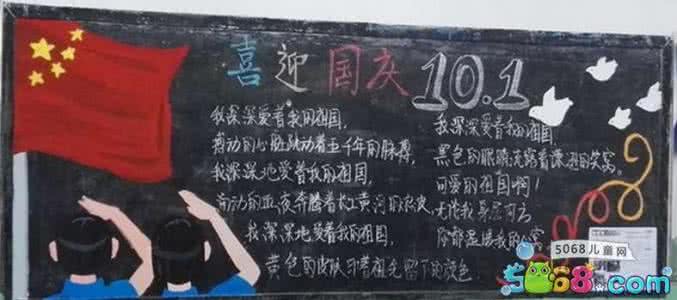 喜迎国庆 10.1
我深深爱着我的祖国,
搏动的心脏跳动着五千年的脉搏,
我深深地爱着我的祖国,
流动的血液奔腾着长江黄河的浪波,
我深深地爱着我的祖国,
黄色的皮肤印着祖先留下的颜色
我深深爱着我的祖国,
黑色的眼睛流露着漂泊的笑窝。
可爱的祖国啊!
无论我身居何方
你都温暖我的心窝
5068儿童网
5068.com